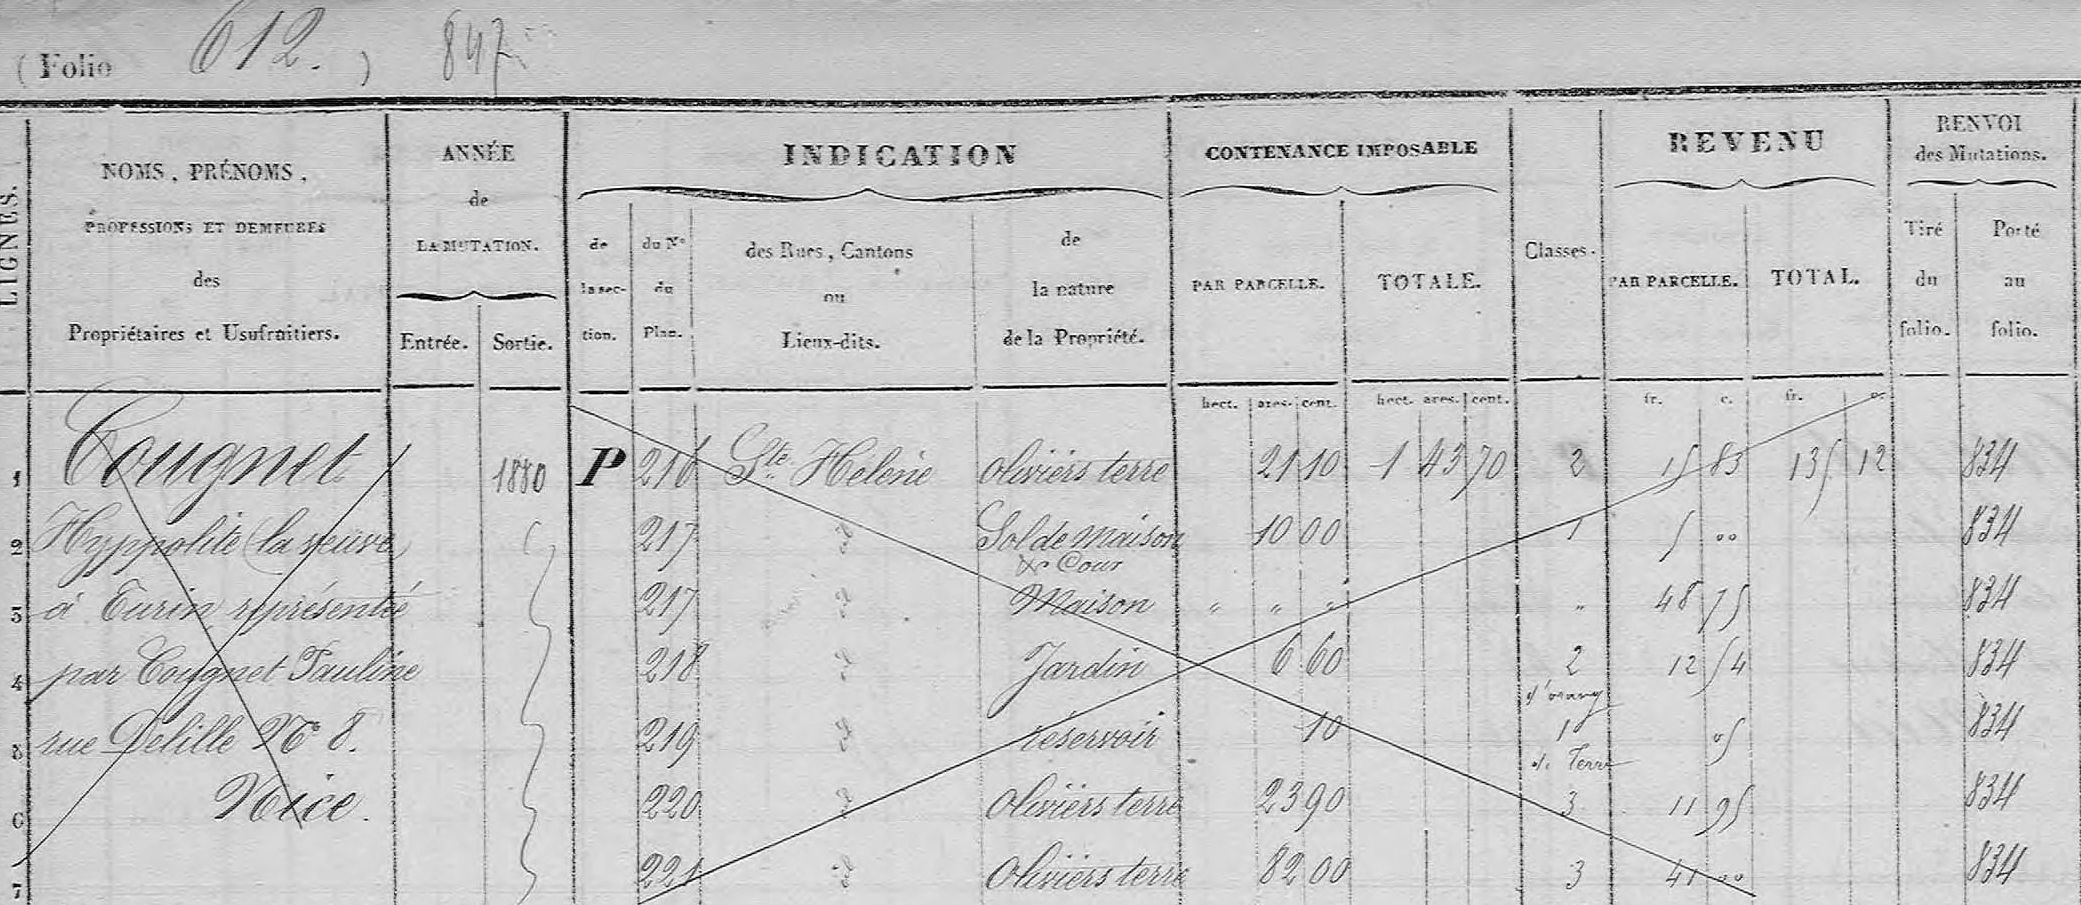 ( Folio 612. ) 847
LIGNES.
NOMS, PRÉNOMS,
PROFESSIONS ET DEMEURES
des
Propriétaires et Usufruitiers.
ANNÉE
de
LA MUTATION.
Entrée. Sortie.
INDICATION
de
la sec-
tion.
du N°
du
Plan.
des Rues, Cantons
ou
Lieux-dits.
de
la nature
de la Propriété.
CONTENANCE IMPOSABLE
PAR PARCELLE. TOTALE.
Classes.
REVENU
PAR PARCELLE. TOTAL.
RENVOI
des Mutations.
Tiré
du
folio.
Porté
au
folio.
hect. ares. cent. hect. ares. cent. fr. c. fr. c.
1 Cougnet 1880 P 216 Ste Hélène oliviers terre 21 10 1 43 70 2 15 83 135 12 834
2 Hyppolite (la veuve) 217 id Sol de maison 10 00 1 5 00 834
& Cour
3 à Turin représentée 217 id Maison " " " " 48 75 834
4 par Cougnet Pauline 218 id Jardin 6 60 2 12 54 834
d'orang
5 rue Delille No 8. 219 id réservoir 10 1 05 834
d. Terre
6 Nice. 220 id oliviers terre 23 90 3 11 95 834
7 221 id oliviers terre 82 00 3 41 00 834